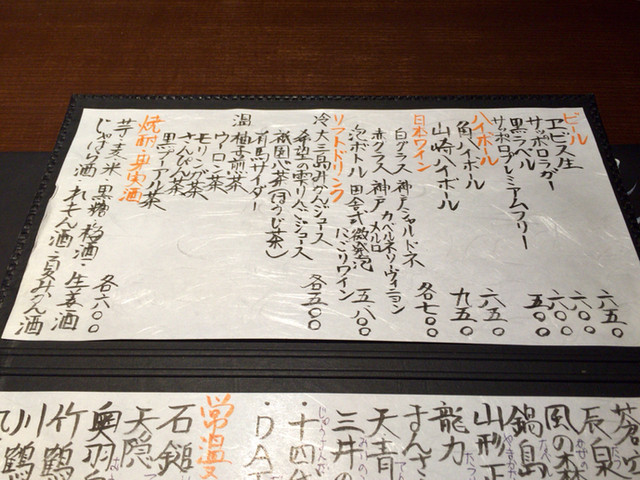 ビール
エビス生 六五〇
サッポロラガー 六〇〇
黒ラベル 六〇〇
サッポロプレミアムフリー 五〇〇
ハイボール
角ハイボール 六五〇
山崎ハイボール 九五〇
日本ワイン
白グラス 神戸シャルドネ
カベルネソーヴィニヨン 各七〇〇
赤グラス 神戸メルロ
泡ボトル 田舎式微発泡にごりワイン 五八〇〇
ソフトドリンク
冷 大三島みかんジュース 各五〇〇
希望の雫りんごジュース
祇園心茶(ほうじ茶)
有馬サイダー
温 柚子煎茶
ウーロン茶
モリンガ茶
さんぴん茶
里デュアル茶
焼酎・果実酒
芋 麦 米 黒糖 梅酒・生姜酒 各六〇〇
じゃばら酒 れもん酒 夏みかん酒
蒼空
辰泉
風の森
鍋島
山形正
龍力
すんさ
天青
三井の
・十四代
・DA
常温
石鎚
天隠
奥羽自
竹鶴
川鶴